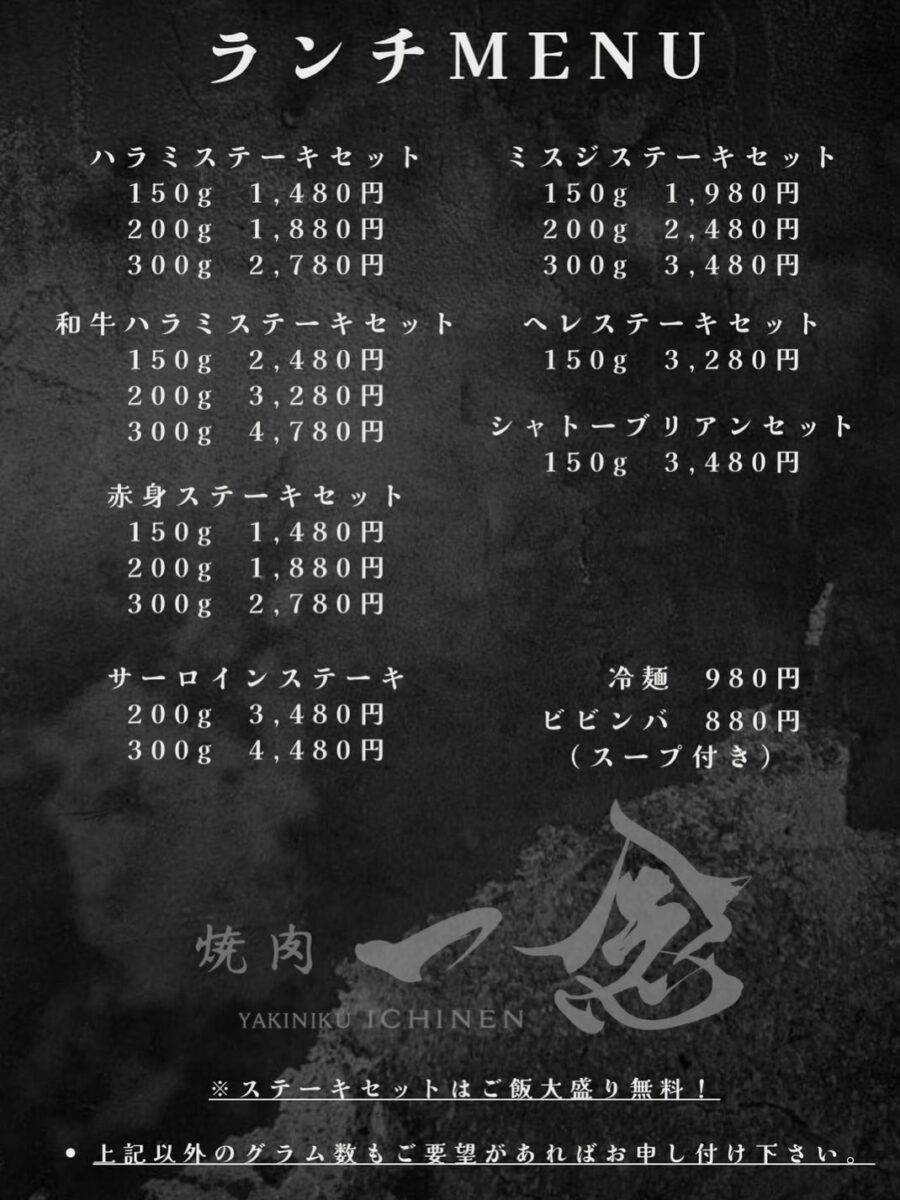 ランチMENU
ハラミステーキセット
150g 1,480円
200g 1,880円
300g 2,780円
和牛ハラミステーキセット
150g 2,480円
200g 3,280円
300g 4,780円
赤身ステーキセット
150g 1,480円
200g 1,880円
300g 2,780円
サーロインステーキ
200g 3,480円
300g 4,480円
ミスジステーキセット
150g 1,980円
200g 2,480円
300g 3,480円
ヘレステーキセット
150g 3,280円
シャトーブリアンセット
150g 3,480円
冷麺 980円
ビビンバ 880円
（スープ付き）
焼肉 一念
YAKINIKU ICHINEN
※ステーキセットはご飯大盛り無料！
• 上記以外のグラム数もご要望があればお申し付け下さい。